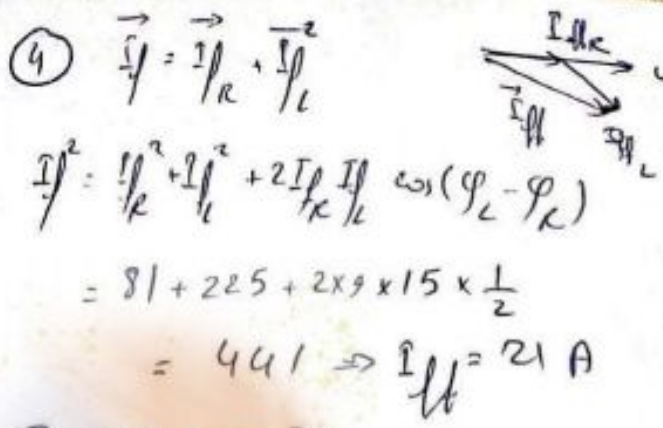 ④ I⃗f = I⃗f_R + I⃗f_L
I_ff R
I⃗_ff
I_ff L
If² = If_R² + If_L² + 2If_R If_L cos(φ_L - φ_R)
= 81 + 225 + 2×9×15×1/2
= 441 ⇒ I_ff = 21 A